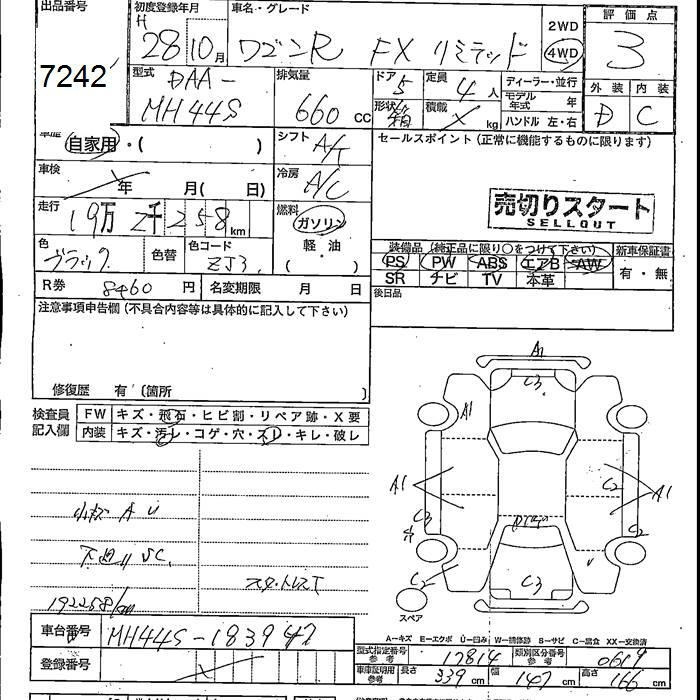 出品番号 7242
初度登録年月 H 28 10月
車名・グレード ワゴンR FX リミテッド
2WD 4WD
評価点 3
外装 D 内装 C
型式 DAA-MH44S
排気量 660 cc
ドア 5 形状 箱
定員 4人 積載 kg
ディーラー・並行
モデル年式 年
ハンドル 左・右
車歴 自家用・( )
シフト A/T
セールスポイント (正常に機能するものに限ります)
車検 年 月( 日)
冷房 A/C
売切りスタート
SELLOUT
走行 19万2千258km
燃料 ガソリン 軽・油 ( )
色 ブラック 色替 色コード ZJ3
装備品(純正品に限り○をつけて下さい) 新車保証書
PS PW ABS エアB AW 有・無
SR ナビ TV 本革
R券 8460円 名変期限 月 日
後日品
注意事項申告欄(不具合内容等は具体的に記入して下さい)
修復歴 有(箇所 )
検査員記入欄 FW キズ・飛石・ヒビ割・リペア跡・X要
内装 キズ・汚レ・コゲ・穴・スレ・キレ・破レ
A1
C3
A1
A1
C2
A1
C3
C2
C2
C3
小キズ A U
下廻りSC
192258km
スタットレスT
スペア
車台番号 MH44S-183947
登録番号
A-キズ E-エクボ U-凹み W-補修跡 S-サビ C-腐食 XX-交換済
型式指定番号 参考 17814 類別区分番号 参考 0619
車庫証明用 参考 長さ 339cm 幅 147cm 高さ 166cm